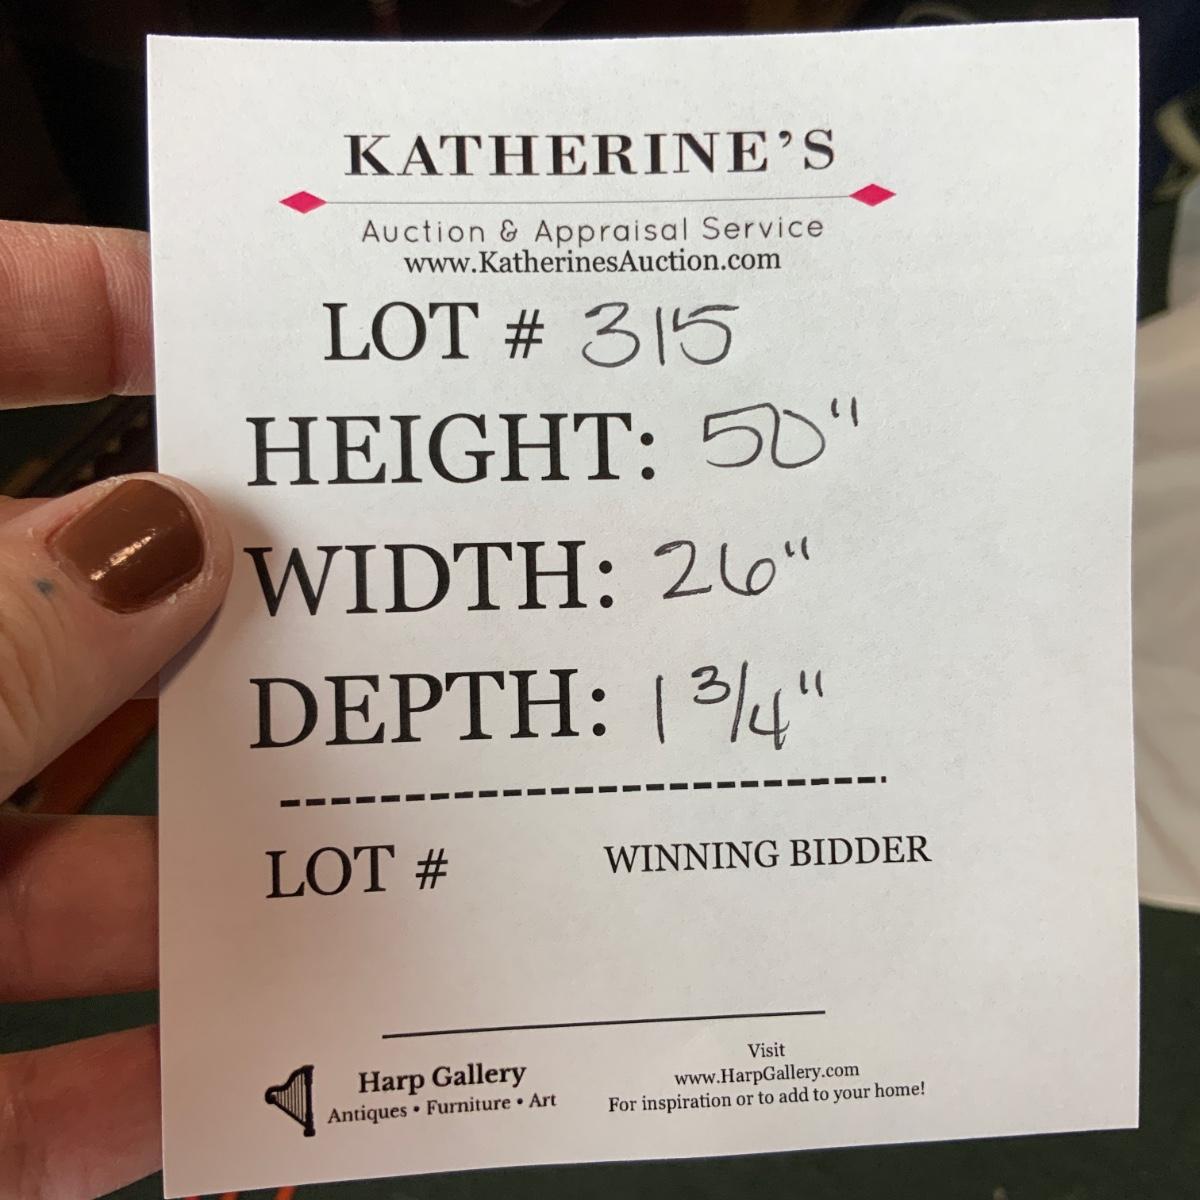 KATHERINE'S
Auction & Appraisal Service
www.KatherinesAuction.com
LOT # 315
HEIGHT: 50"
WIDTH: 26"
DEPTH: 1 3/4"
LOT # WINNING BIDDER
Harp Gallery
Antiques • Furniture • Art
Visit
www.HarpGallery.com
For inspiration or to add to your home!